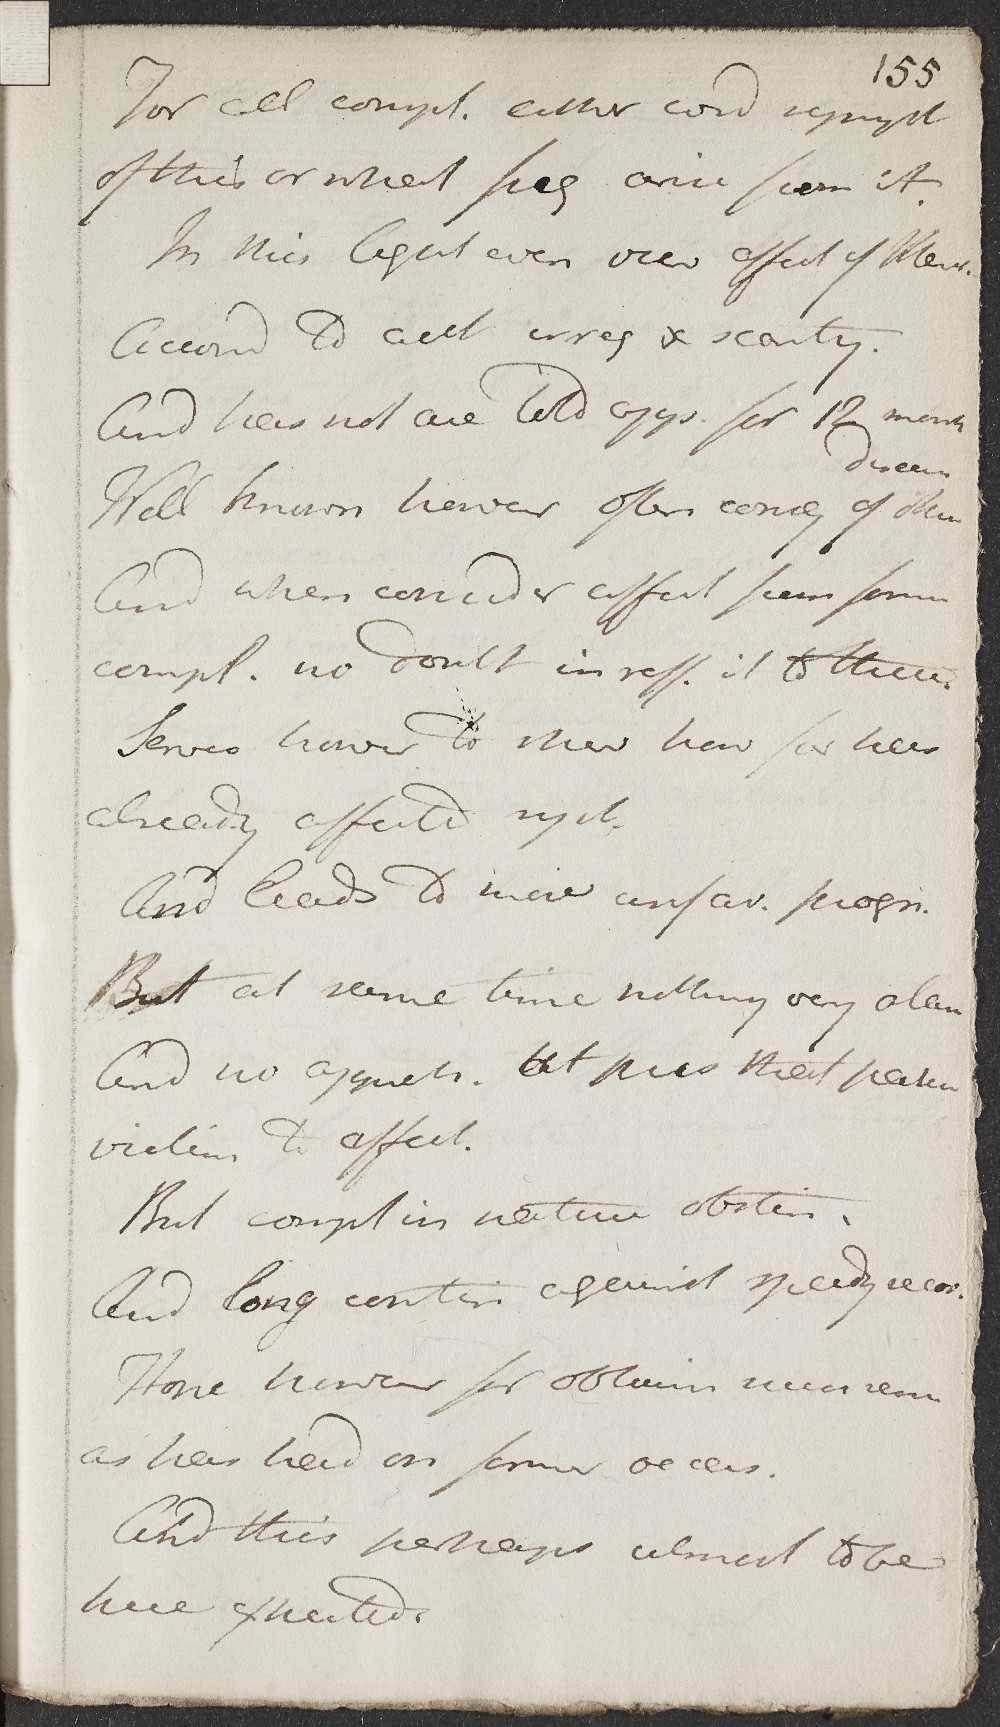 155
For all compl. either cons sympt
of this or what freq arise from it.
In this light even view effect of Mens.
Accord to acct irreg & scanty.
And has not are told app. for 12 month
diseas
Well known however often conseq of other
And when consider effect from former
compl. no doubt in reff. it to them.
Serves howr to shew how far has
already affected syst.
And leads to more unfav. progn.
But at same time nothing very alarm
And no appreh. at pres that patien
victim to affect.
But compl in nature obstin.
And long contin against speedy recov.
Hope however for obtainin
as has had on former occas.
And this perhaps utmost to be
here expected.